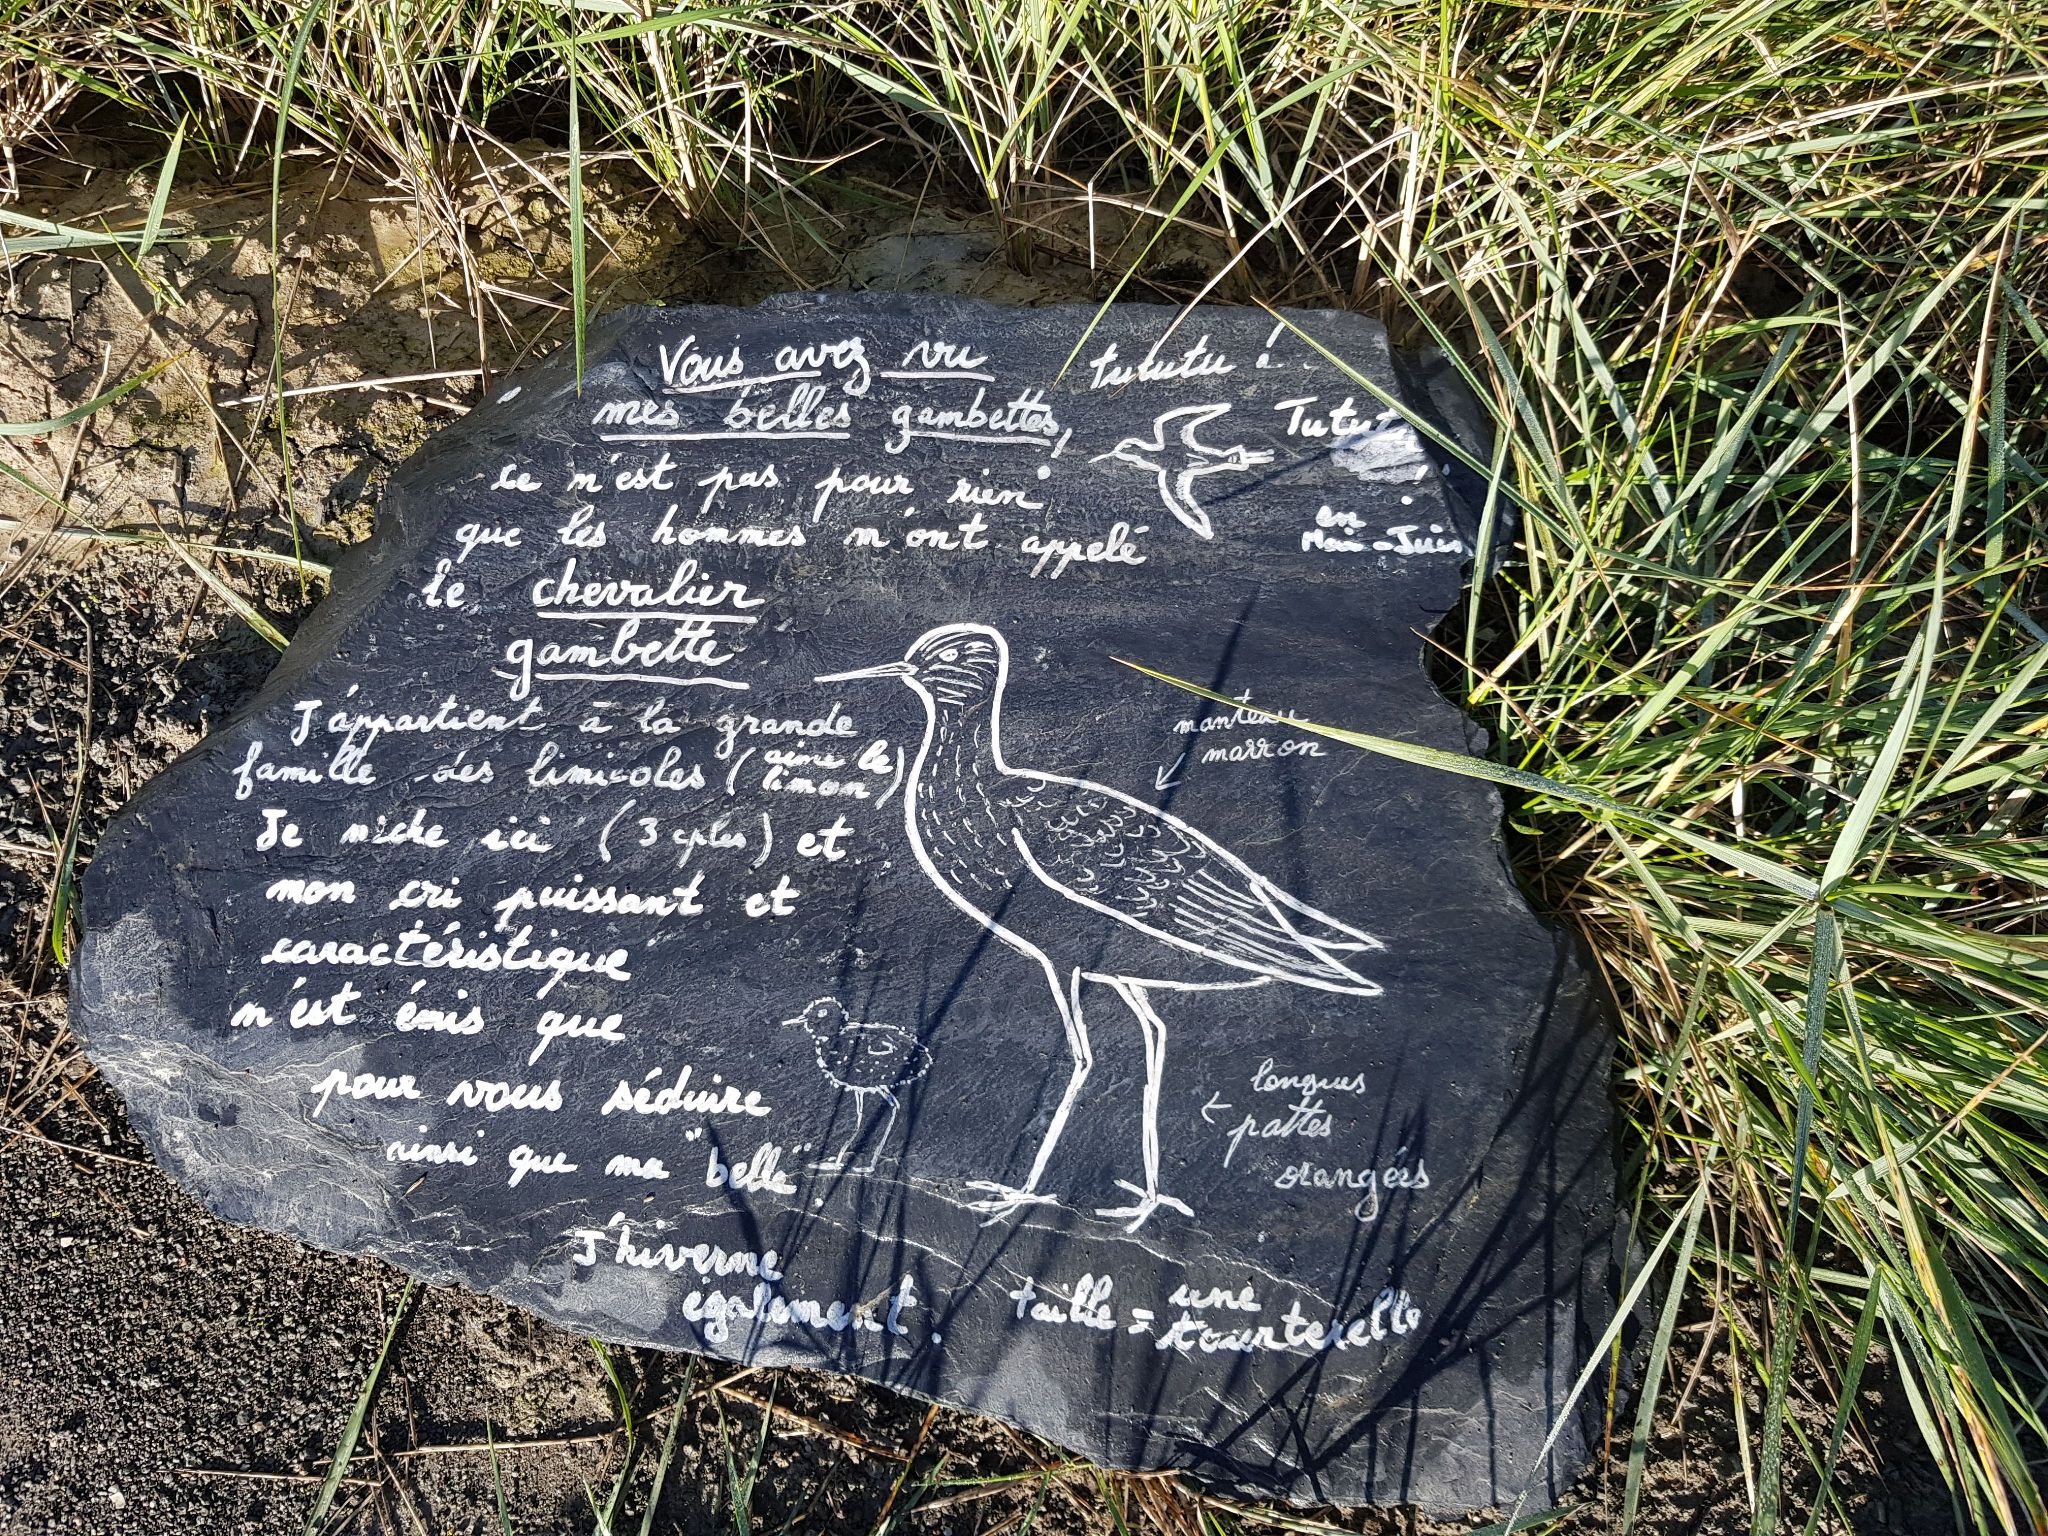 Vous avez vu
mes belles gambettes,
ce n'est pas pour rien
que les hommes m'ont appelé
le chevalier
gambette
tututu !
Tututu
!
en
Mai-Juin
J'appartient à la grande
famille des limicoles (aime le
limon)
Je niche ici (3 cples) et
mon cri puissant et
caractéristique
n'est émis que
pour vous séduire
ainsi que ma "belle".
J'hiverne
également.
manteau
marron
longues
pattes
orangées
taille = une
tourterelle